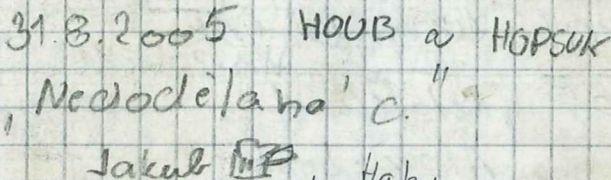 31.8.2005 HOUB a HOPSUK
„Nedodělaná" c.
Jakub